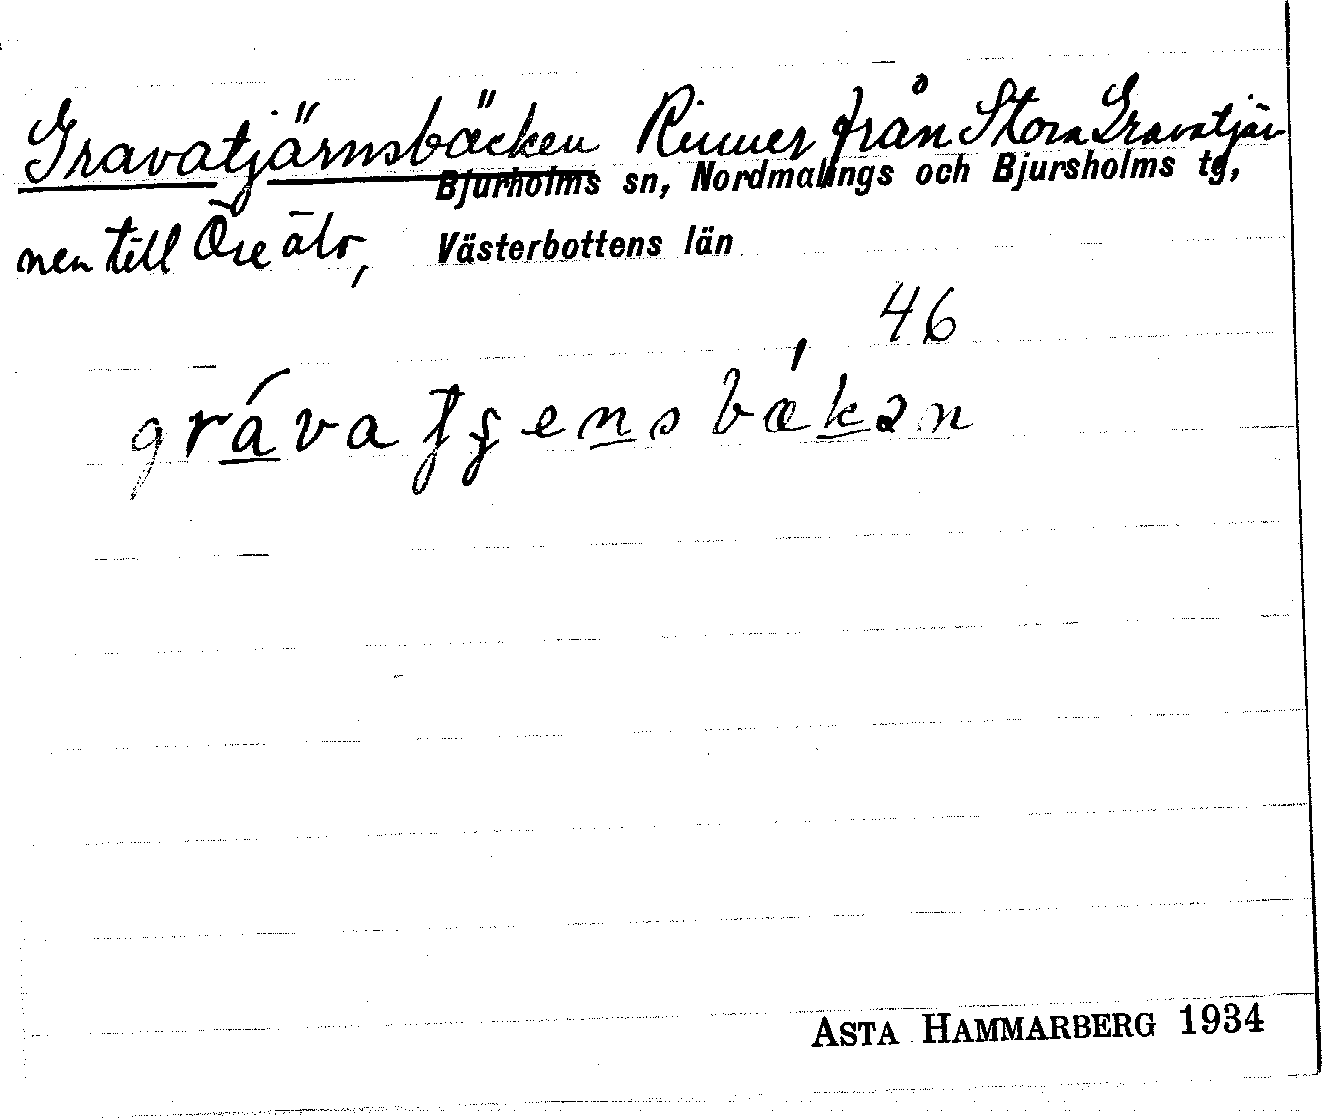 Gravatjärnsbäcken Rinner från Stora Gravatjär-
Bjurholms sn, Nordmalings och Bjursholms tg,
nen till Öre älv, Västerbottens län
46
ASTA HAMMARBERG 1934